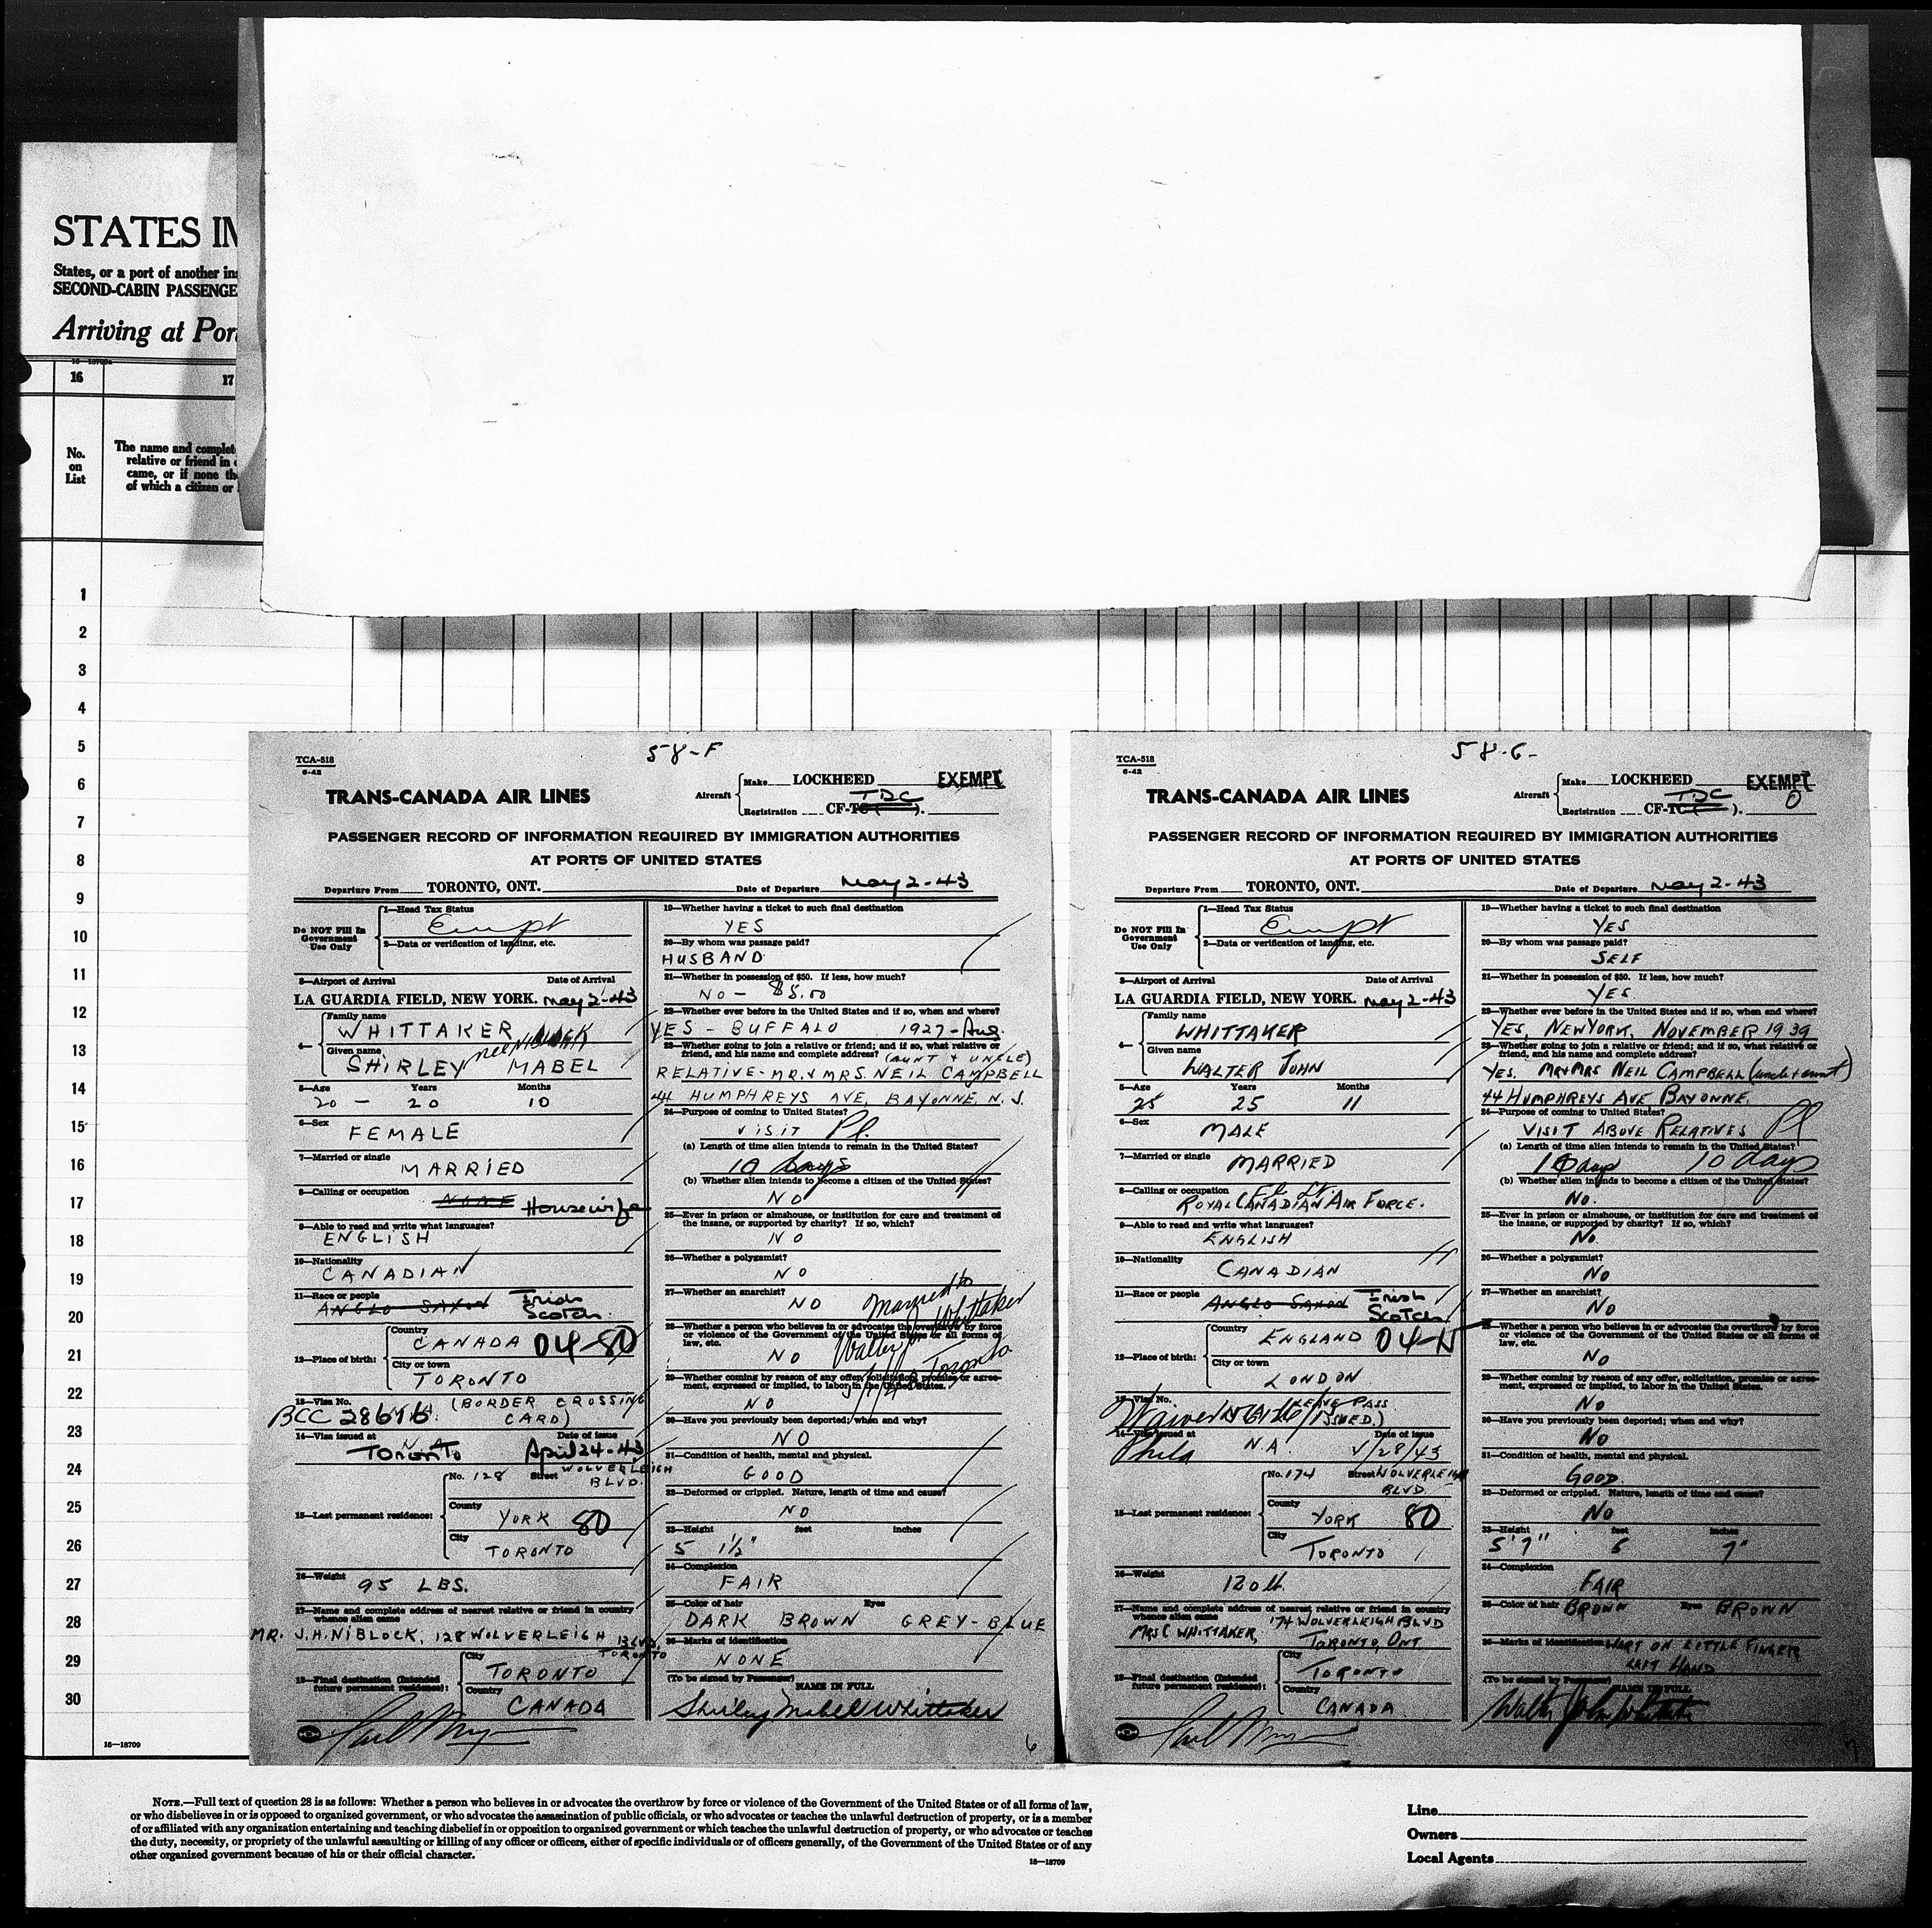 STATES IN
States, or a port of another ins
SECOND-CABIN PASSENGE
Arriving at Por
16 17
No. on List
The name and complete
relative or friend in
came, or if none th
of which a citizen or
1
2
3
4
5
6
7
8
9
10
11
12
13
14
15
16
17
18
19
20
21
22
23
24
25
26
27
28
29
30
16—18709
58-F
TCA-518
6-42
TRANS-CANADA AIR LINES
Aircraft
Make LOCKHEED
EXEMPT
Registration CF-TC( ). TDC
PASSENGER RECORD OF INFORMATION REQUIRED BY IMMIGRATION AUTHORITIES
AT PORTS OF UNITED STATES
Departure From TORONTO, ONT. Date of Departure May 2-43
Do NOT Fill In Government Use Only
1—Head Tax Status
Exempt
2—Data or verification of landing, etc.
3—Airport of Arrival Date of Arrival
LA GUARDIA FIELD, NEW YORK. May 2-43
4—
Family name
WHITTAKER
Given name
SHIRLEY MABEL
nee NIBLOCK
5—Age Years Months
20 — 20 10
6—Sex
FEMALE
7—Married or single
MARRIED
8—Calling or occupation
NONE Housewife
9—Able to read and write what languages?
ENGLISH
10—Nationality
CANADIAN
11—Race or people
ANGLO SAXON Irish
Scotch
12—Place of birth:
Country
CANADA 04-80
City or town
TORONTO
13—Visa No. (BORDER CROSSING
BCC 28676 CARD)
14—Visa issued at Date of issue
N.A.
Toronto April 24-43
15—Last permanent residence:
No. 128 Street WOLVERLEIGH
BLVD.
County
YORK 80
City
TORONTO
16—Weight
95 LBS.
17—Name and complete address of nearest relative or friend in country
whence alien came
MR. J.H. NIBLOCK, 128 WOLVERLEIGH BLVD,
TORONTO
18—Final destination (Intended
future permanent residence):
City
TORONTO
Country
CANADA
19—Whether having a ticket to such final destination
YES
20—By whom was passage paid?
HUSBAND
21—Whether in possession of $50. If less, how much?
NO —
22—Whether ever before in the United States and if so, when and where?
YES - BUFFALO 1927-Aug.
23—Whether going to join a relative or friend; and if so, what relative or
friend, and his name and complete address? (AUNT & UNCLE)
RELATIVE - MR. & MRS. NEIL CAMPBELL
44 HUMPHREYS AVE, BAYONNE, N.J.
24—Purpose of coming to United States?
VISIT Pl.
(a) Length of time alien intends to remain in the United States?
10 days
(b) Whether alien intends to become a citizen of the United States?
NO
25—Ever in prison or almshouse, or institution for care and treatment of
the insane, or supported by charity? If so, which?
NO
26—Whether a polygamist?
NO
27—Whether an anarchist?
NO
Married to
Walter J Whittaker
Toronto
28—Whether a person who believes in or advocates the overthrow by force
or violence of the Government of the United States or all forms of
law, etc.
NO
29—Whether coming by reason of any offer, solicitation, promise or agree-
ment, expressed or implied, to labor in the United States.
NO
30—Have you previously been deported; when and why?
NO
31—Condition of health, mental and physical.
GOOD
32—Deformed or crippled. Nature, length of time and cause?
NO
33—Height feet inches
5 1½"
34—Complexion
FAIR
35—Color of hair Eyes
DARK BROWN GREY-BLUE
36—Marks of identification
NONE
(To be signed by Passenger)
NAME IN FULL
Shirley Mabel Whittaker
6
58-G-
TCA-518
6-42
TRANS-CANADA AIR LINES
Aircraft
Make LOCKHEED
EXEMPT
0
Registration CF-TC( ). TDC
PASSENGER RECORD OF INFORMATION REQUIRED BY IMMIGRATION AUTHORITIES
AT PORTS OF UNITED STATES
Departure From TORONTO, ONT. Date of Departure May 2-43
Do NOT Fill In Government Use Only
1—Head Tax Status
Exempt
2—Data or verification of landing, etc.
3—Airport of Arrival Date of Arrival
LA GUARDIA FIELD, NEW YORK. May 2-43
4—
Family name
WHITTAKER
Given name
WALTER JOHN
5—Age Years Months
25 25 11
6—Sex
MALE
7—Married or single
MARRIED
8—Calling or occupation Fl. Lt.
ROYAL CANADIAN AIR FORCE.
9—Able to read and write what languages?
ENGLISH
10—Nationality
CANADIAN
11—Race or people
ANGLO SAXON Irish
Scotch
12—Place of birth:
Country
ENGLAND 04-N
City or town
LONDON
13—Visa No. LEAVE PASS
ISSUED.)
14—Visa issued at Date of issue
N.A.
15—Last permanent residence:
No. 174 Street WOLVERLEIGH
BLVD.
County
YORK 80
City
TORONTO
16—Weight
120 lb.
17—Name and complete address of nearest relative or friend in country
whence alien came 174 WOLVERLEIGH BLVD
MRS C WHITTAKER, TORONTO, ONT.
18—Final destination (Intended
future permanent residence):
City
TORONTO
Country
CANADA
19—Whether having a ticket to such final destination
YES
20—By whom was passage paid?
SELF
21—Whether in possession of $50. If less, how much?
YES
22—Whether ever before in the United States and if so, when and where?
YES, NEW YORK, NOVEMBER 1939
23—Whether going to join a relative or friend; and if so, what relative or
friend, and his name and complete address?
YES. MR & MRS NEIL CAMPBELL (uncle & aunt)
44 HUMPHREYS AVE BAYONNE.
24—Purpose of coming to United States?
VISIT ABOVE RELATIVES Pl
(a) Length of time alien intends to remain in the United States?
10 days 10 days
(b) Whether alien intends to become a citizen of the United States?
NO.
25—Ever in prison or almshouse, or institution for care and treatment of
the insane, or supported by charity? If so, which?
NO.
26—Whether a polygamist?
NO
27—Whether an anarchist?
NO
28—Whether a person who believes in or advocates the overthrow by force
or violence of the Government of the United States or all forms of
law, etc.
NO
29—Whether coming by reason of any offer, solicitation, promise or agree-
ment, expressed or implied, to labor in the United States.
NO
30—Have you previously been deported; when and why?
NO
31—Condition of health, mental and physical.
GOOD.
32—Deformed or crippled. Nature, length of time and cause?
NO
33—Height feet inches
5'7" 5 7"
34—Complexion
FAIR
35—Color of hair BROWN Eyes BROWN
36—Marks of identification WART ON LITTLE FINGER
LEFT HAND
(To be signed by Passenger)
NAME IN FULL
Walter John Whittaker
7
NOTE.—Full text of question 28 is as follows: Whether a person who believes in or advocates the overthrow by force or violence of the Government of the United States or of all forms of law,
or who disbelieves in or is opposed to organized government, or who advocates the assassination of public officials, or who advocates or teaches the unlawful destruction of property, or is a member
of or affiliated with any organization entertaining and teaching disbelief in or opposition to organized government or which teaches the unlawful destruction of property, or who advocates or teaches
the duty, necessity, or propriety of the unlawful assaulting or killing of any officer or officers, either of specific individuals or of officers generally, of the Government of the United States or of any
other organized government because of his or their official character.
16—18709
Line
Owners
Local Agents